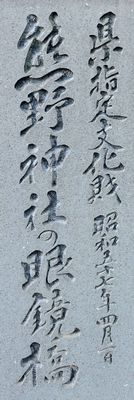 県指定文化財 昭和五十七年四月一日
熊野神社の眼鏡橋